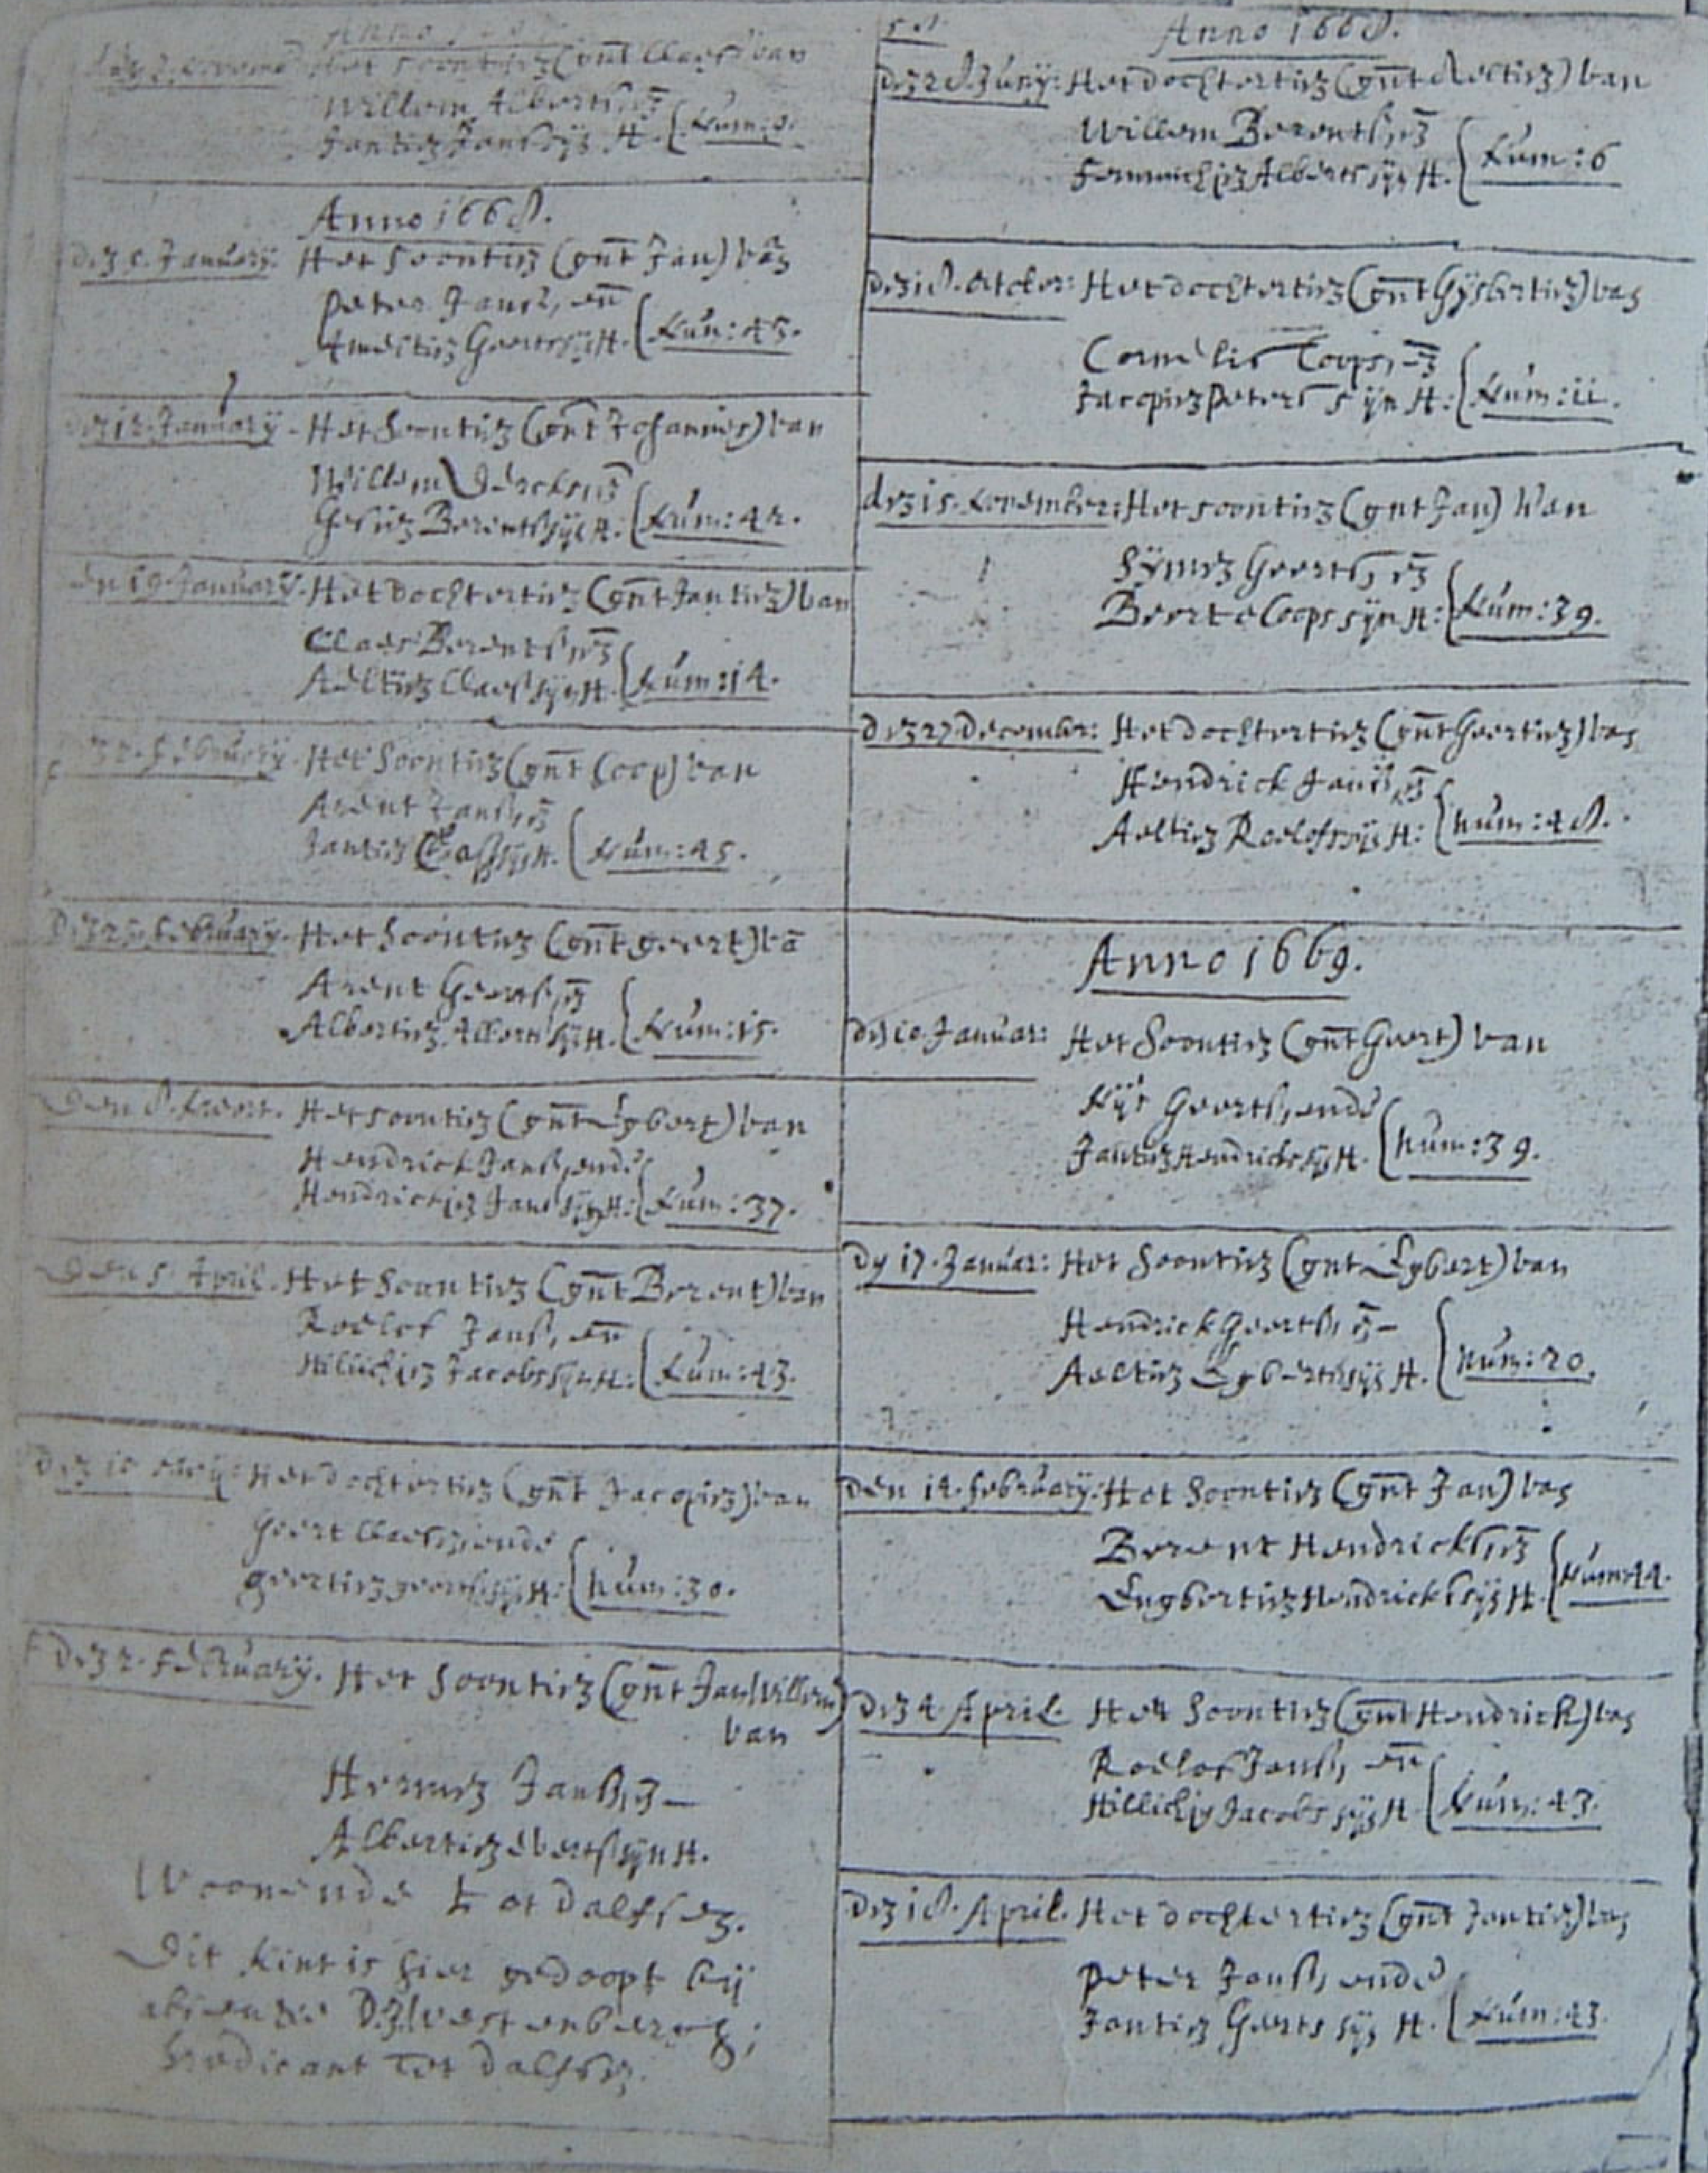 Het soontien (gnt Claes) van
Willem Alberts, en
Jantien Jans sijn H.
Anno 1668.
den 5. January. Het soontien (gnt Jan) van
Peter Jans, en
Geerts sijn H. Num: 45.
den 12 January. Het soontien (gnt Johannes) van
Willem Dercks, en
Gesien Berents sijn H. Num: 42.
den 19 January. Het dochtertien (gnt Jantien) van
Claes Berents, en
Aeltien Claes sijn H. Num: 14.
den 2. February. Het soontien (gnt Coop) van
Arent Jans, en
Jantien sijn H. Num: 45.
February. Het soontien (gnt geert) va
Arent Geerts, en
Albertien Alberts sijn H. Num: 15.
Den 8. Meert. Het soontien (gnt Egbert) van
Hendrick Jans, ende
Hendrickien Jans sijn H: Num: 37.
Den 5 April. Het soontien (gnt Berent) van
Roelof Jans, en
Hillichien Jacobs sijn H: Num: 43.
den 10 Meij: Het dochtertien (gnt Jacopien) van
Geert Claes, ende
geertien geerts sijn H: Num: 30.
Den 2. February. Het soontien (gnt Jan Willem)
van
Hermen Jans, en
Albertien Everts sijn H.
Woonende tot Dalfsen.
Dit kint is hier gedoopt bij
absentie D. Westenbergh;
predicant tot Dalfsen.
Anno 1668.
den 28. Juny: Het dochtertien (gnt Aeltien) van
Willem Berents, en
Femmichien Alberts sijn H. Num: 6
den 18. October: Het dochtertien (gnt Gijsbertien) van
Cornelis Coops, en
Jacopien Peters sijn H: Num: 11.
den 15. November: Het soontien (gnt Jan) Van
Symen Geerts, en
Beerte Coops sijn H: Num: 39.
den 27 December: Het dochtertien (gnt Geertien) van
Hendrick Jans, en
Aeltien Roelofs sijn H: Num: 48.
Anno 1669.
den 10 Januar: Het soontien (gnt Geert) van
Geerts, ende
Jantien Hendricks sijn H. Num: 39.
Dy 17. Januar: Het soontien (gnt Egbert) van
Hendrick Geerts, en
Aeltien Egberts sijn H. Num: 20.
Den 14. February: Het soontien (gnt Jan) van
Berent Hendricks, en
Engbertien Hendricks sijn H. Num: 44.
Den 4 April. Het soontien (gnt Hendrick) van
Roelof Jans, en
Hillichien Jacobs sijn H. Num: 43.
Den 18. April. Het dochtertien (gnt Jantien) van
Peter Jans, ende
Jantien Geerts sijn H. Num: 43.